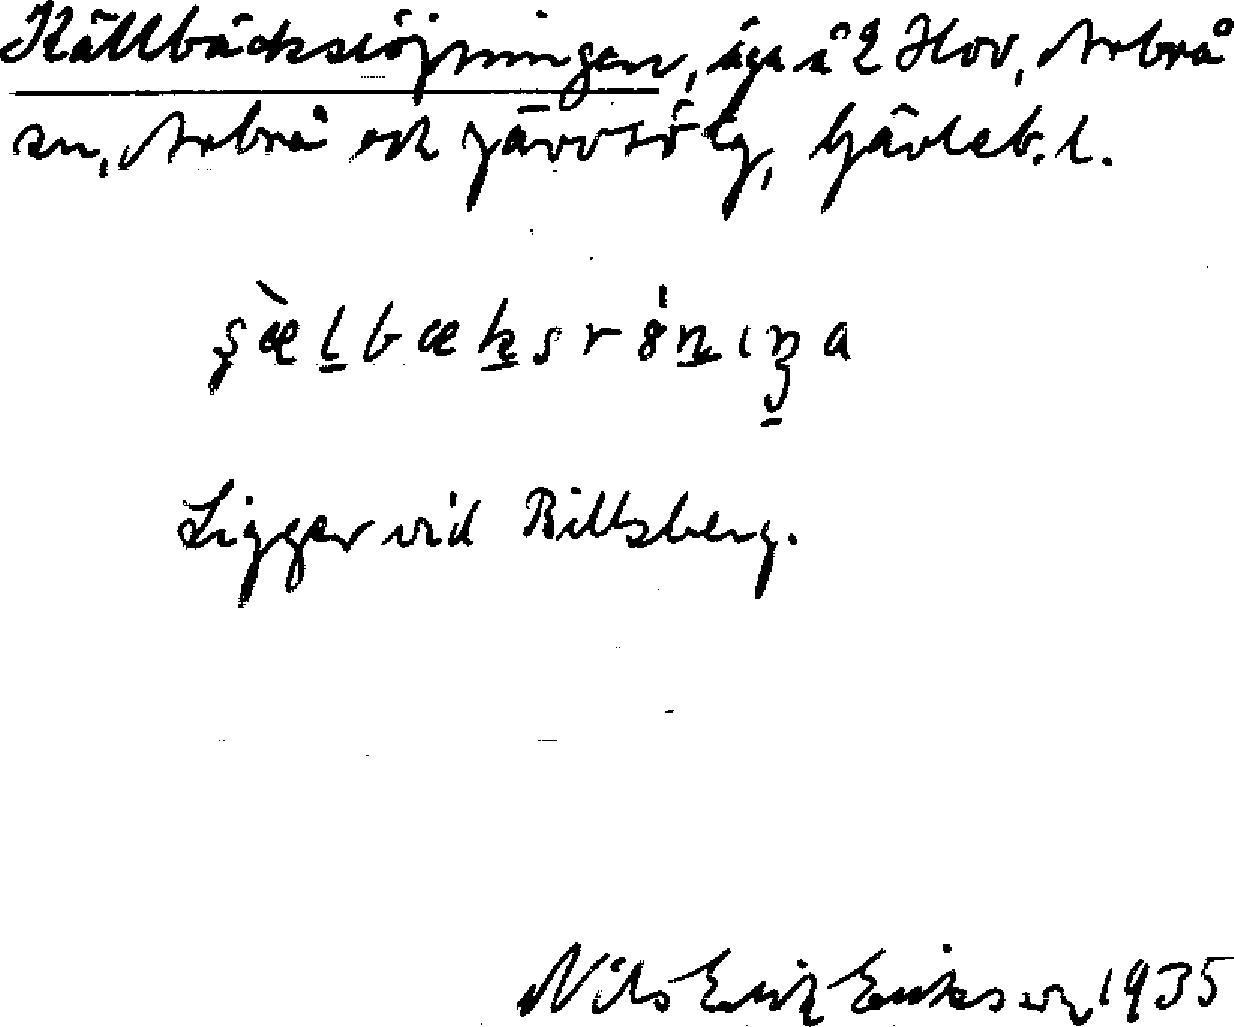 Källbäcksröjningen, äga å 2 Hov, Arbrå
sn, Arbrå och Järvsö tg, Gävleb. l.
Ligger vid Billsberg.
Nils Erik Eriksson 1935